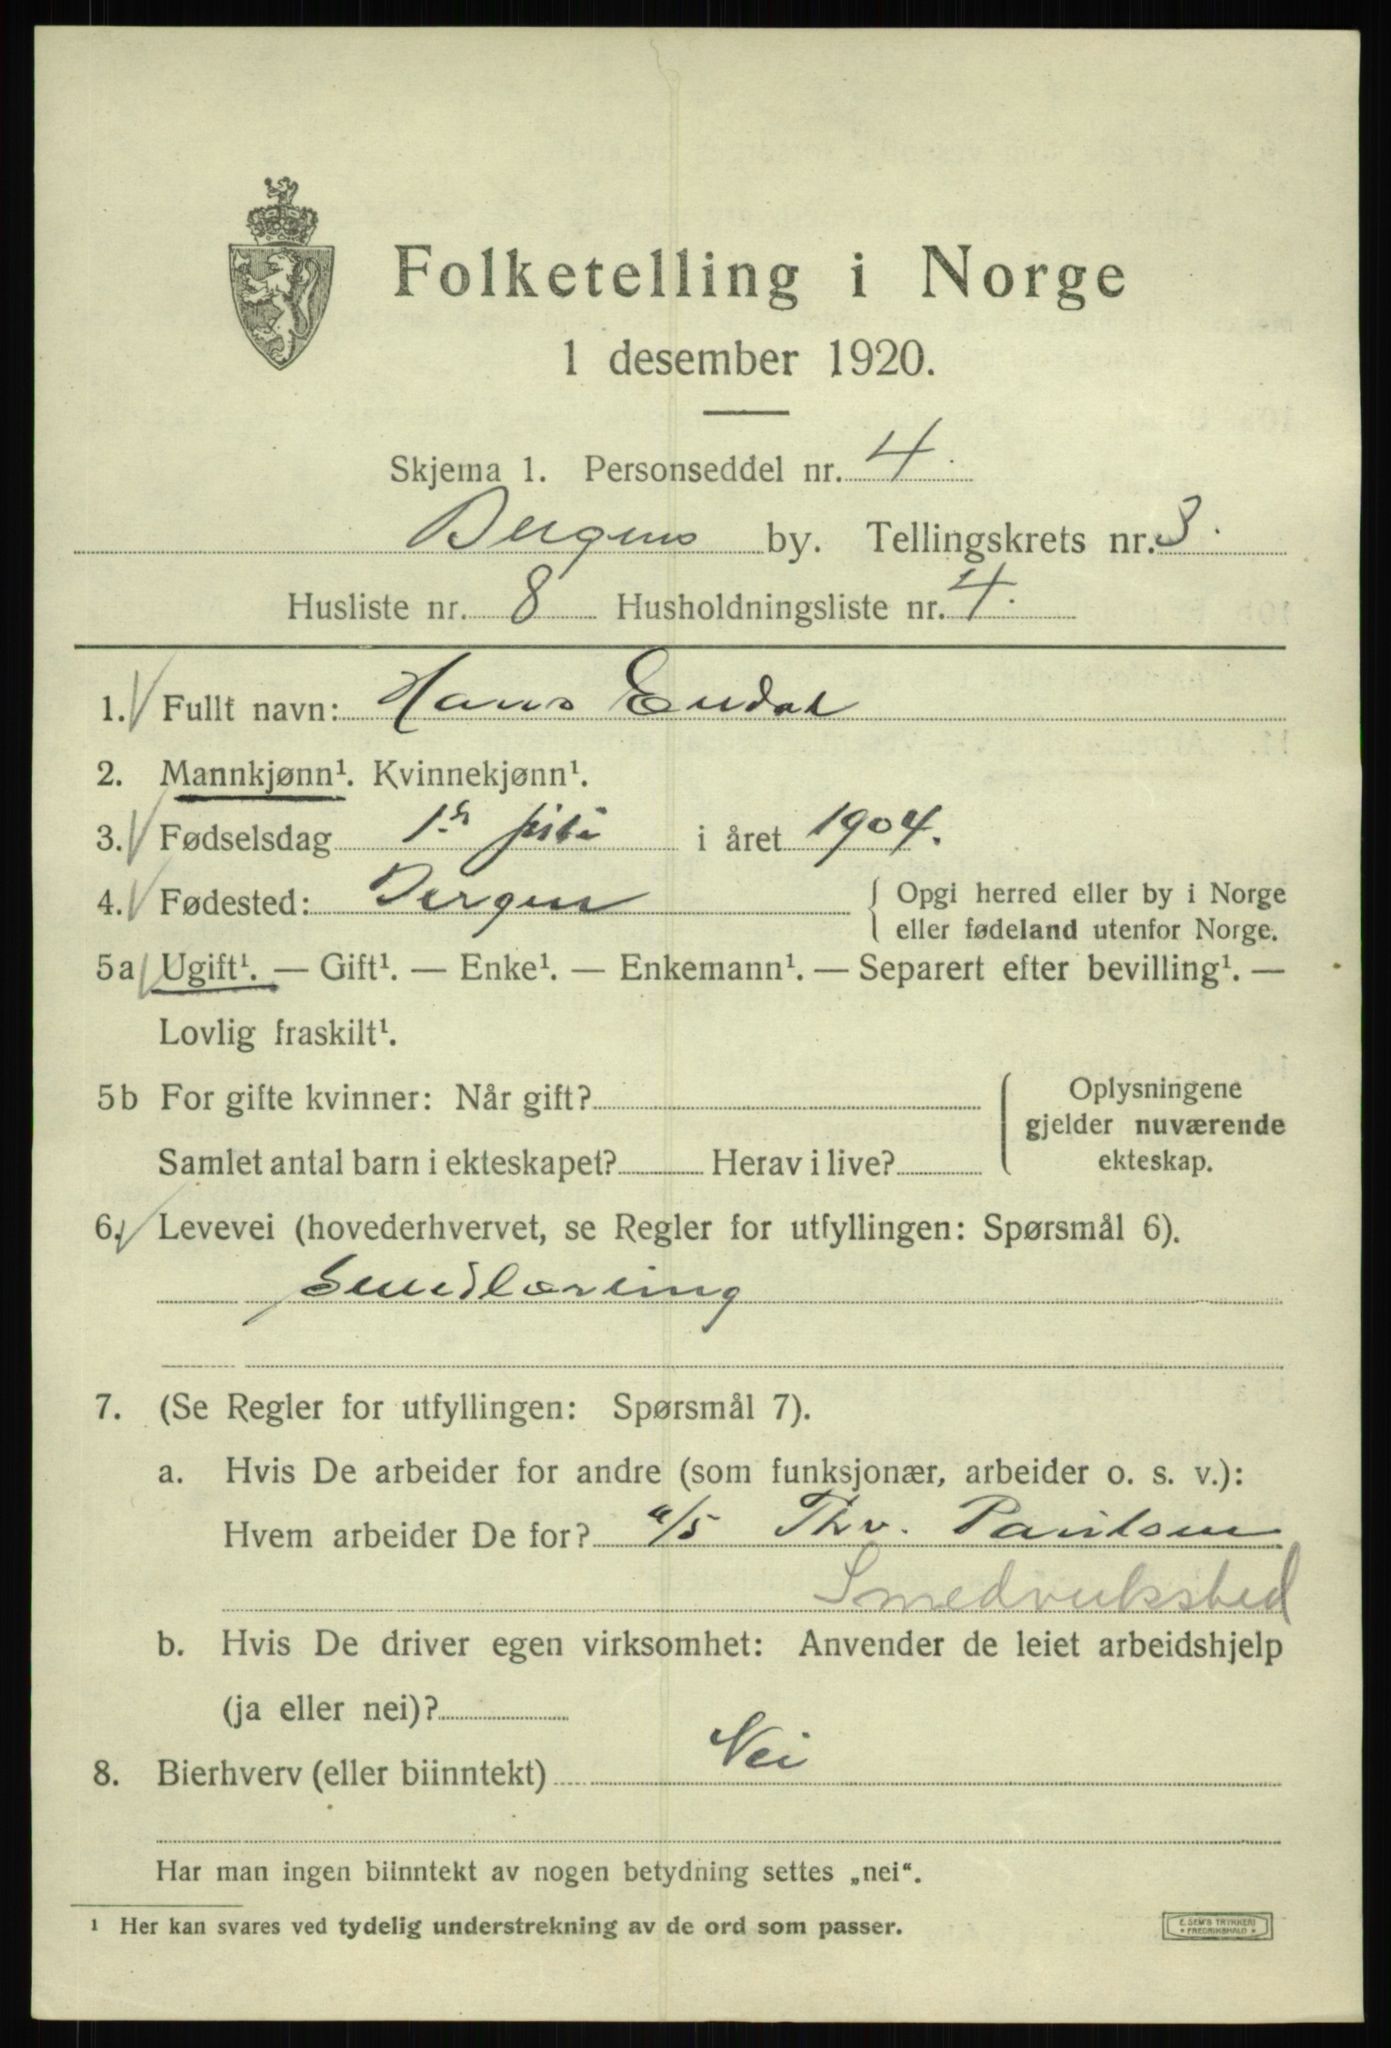 Folketelling i Norge
1 desember 1920.
Skjema 1. Personseddel nr. 4.
Bergens by. Tellingskrets nr. 3.
Husliste nr. 8 Husholdningsliste nr. 4.
1. Fullt navn: Hans
2. Mannkjønn¹. Kvinnekjønn¹.
3. Fødselsdag 1ste i året 1904.
4. Fødested: Bergen { Opgi herred eller by i Norge
eller fødeland utenfor Norge.
5a Ugift¹. — Gift¹. — Enke¹. — Enkemann¹. — Separert efter bevilling¹. —
Lovlig fraskilt¹.
5b For gifte kvinner: Når gift? { Oplysningene
gjelder nuværende
Samlet antal barn i ekteskapet? Herav i live? ekteskap.
6. Levevei (hovederhvervet, se Regler for utfyllingen: Spørsmål 6).
Smedlærling
7. (Se Regler for utfyllingen: Spørsmål 7).
a. Hvis De arbeider for andre (som funksjonær, arbeider o. s. v.):
Hvem arbeider De for? a/s Thv. Paulsen
Smedverksted
b. Hvis De driver egen virksomhet: Anvender de leiet arbeidshjelp
(ja eller nei)?
8. Bierhverv (eller biinntekt) Nei
Har man ingen biinntekt av nogen betydning settes „nei“.
¹ Her kan svares ved tydelig understrekning av de ord som passer.
E. SEM'S TRYKKERI
* FREDRIKSHALD *